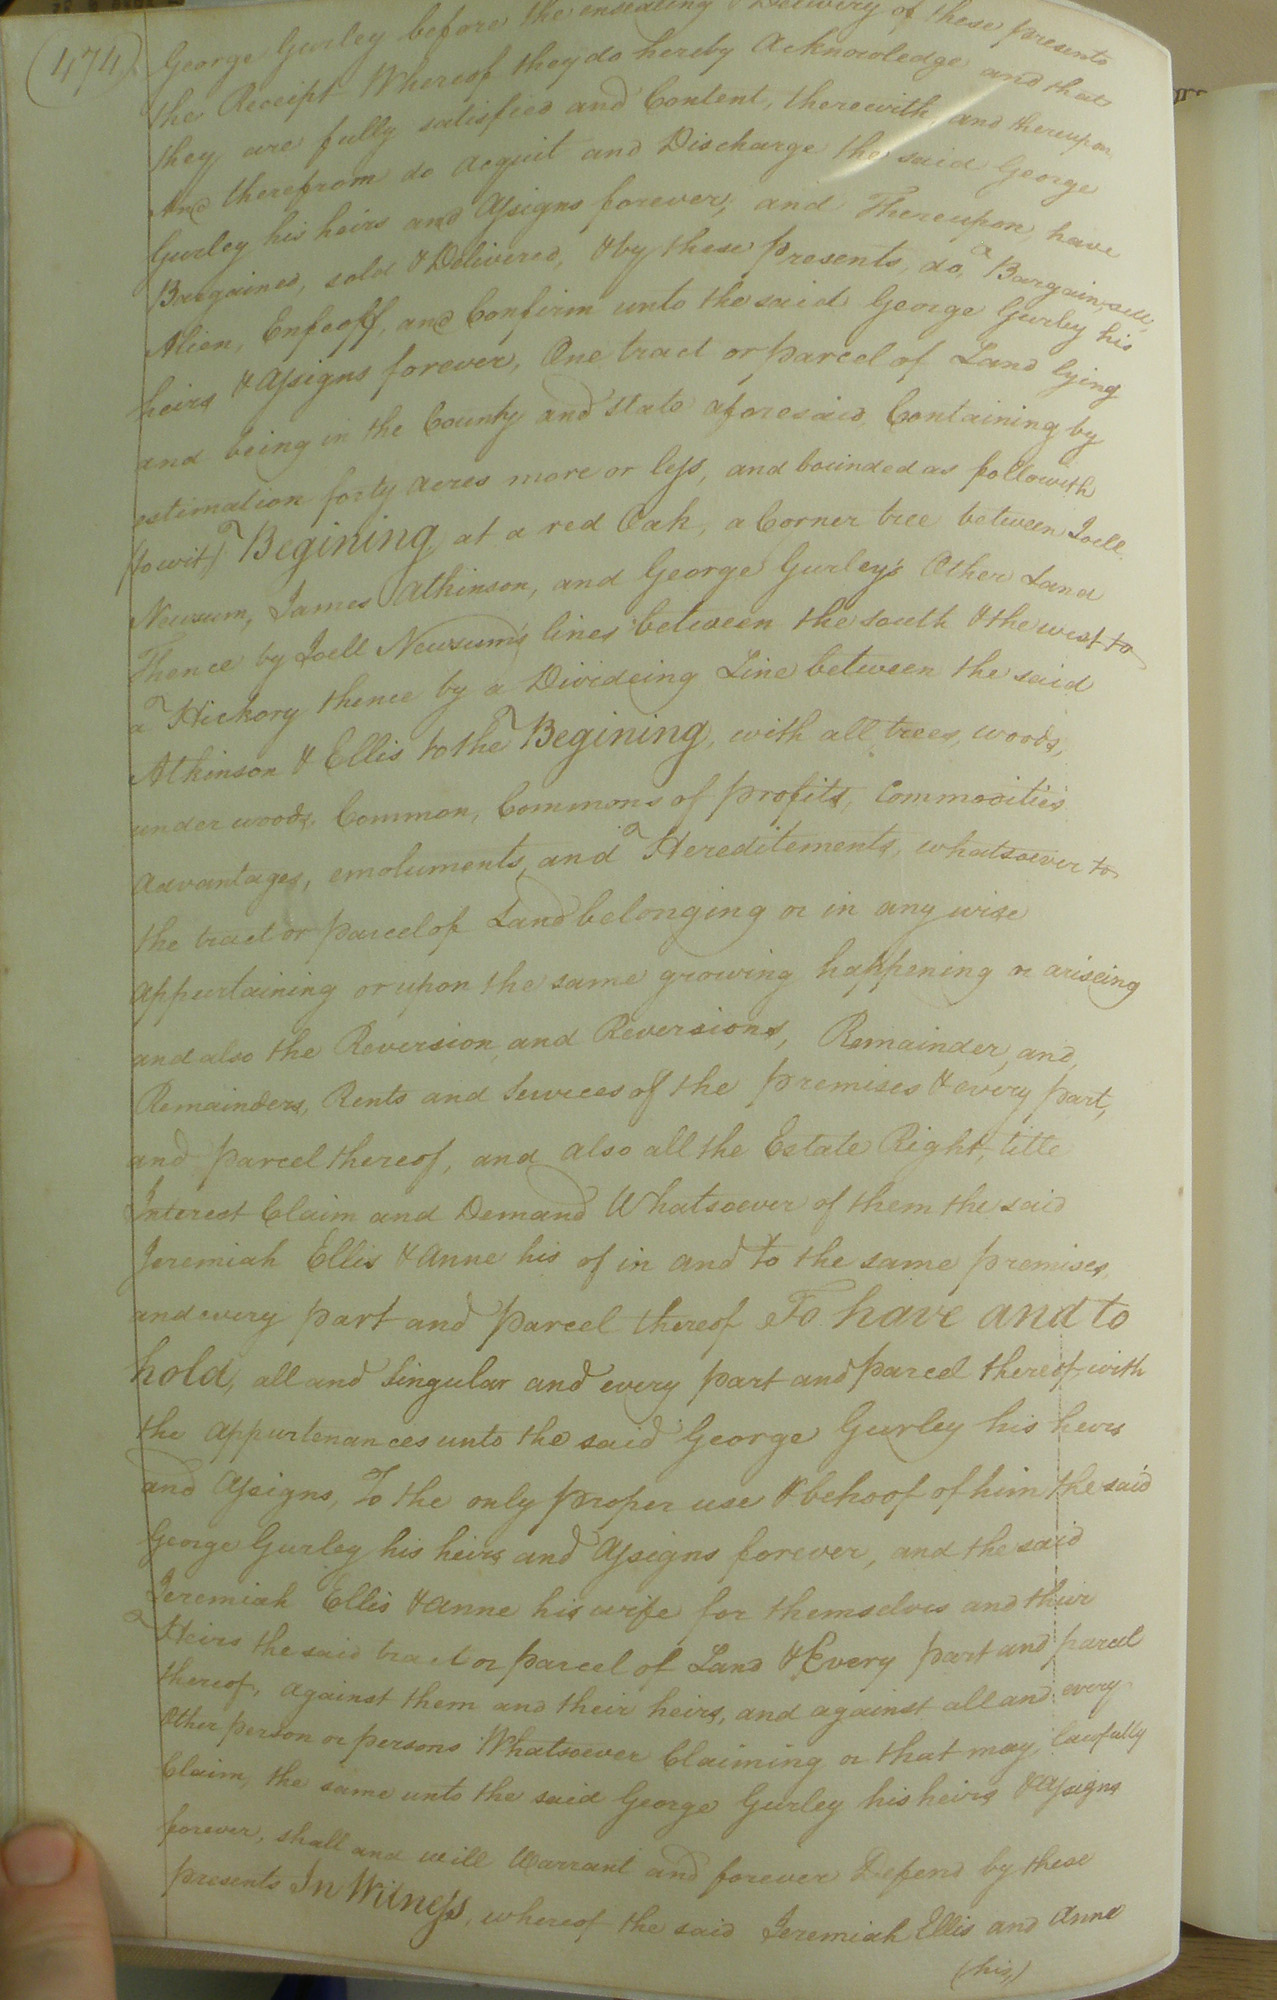 (474)
George Gurley before the ensealing & Delivery of these presents
the Receipt Whereof they do hereby Acknowledge and that
they are fully satisfied and Content, therewith and thereupon
And therefrom do Acquit and Discharge the said George
Gurley his heirs and Assigns forever, and Thereupon, have
Bargained, sold & Delivered, & by these presents, do, Bargain, sell,
Alien, Enfeoff, and Confirm unto the said George Gurley his
heirs & Assigns forever, One tract or parcel of Land lying
and being in the County and State aforesaid Containing by
estimation forty acres more or less, and bounded as followith
(to wit) Begining, at a red Oak, a Corner tree between Joell
Newsum, James Atkinson, and George Gurley's Other Land
Thence by Joell Newsum's lines between the south & the west to
a Hickory thence by a Divideing Line between the said
Atkinson & Ellis to the Begining, with all trees, woods,
under woods, Common, Commons of profits, Commodities
Advantages, emoluments, and Hereditements, whatsoever to
the tract or parcel of Land belonging or in any wise
appertaining or upon the same growing happening or ariseing
and also the Reversion and Reversions, Remainder, and
Remainders, Rents and Services of the premises & every part,
and parcel thereof, and also all the Estate Right, title
Interest Claim and Demand Whatsoever of them the said
Jeremiah Ellis & Anne his of in and to the same premises,
and every part and parcel thereof To have and to
hold, all and Singular and every part and parcel thereof with
the appurtenances unto the said George Gurley his heirs
and Assigns, To the only proper use & behoof of him the said
George Gurley his heirs and Assigns forever, and the said
Jeremiah Ellis & Anne his wife for themselves and their
Heirs the said tract or parcel of Land & Every part and parcel
thereof, against them and their heirs, and against all and every
Other person or persons Whatsoever Claiming or that may lawfully
Claim, the same unto the said George Gurley his heirs & Assigns
forever, shall and will Warrant and forever Defend by these
presents In Witness, whereof the said Jeremiah Ellis and Anne
(his)